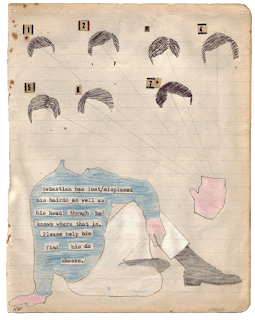 1
2
3
4
5
6
7
Sebastian has lost/misplaced
his hairdo as well as
his head though he
knows where that is.
Please help him
find his do
cheers.